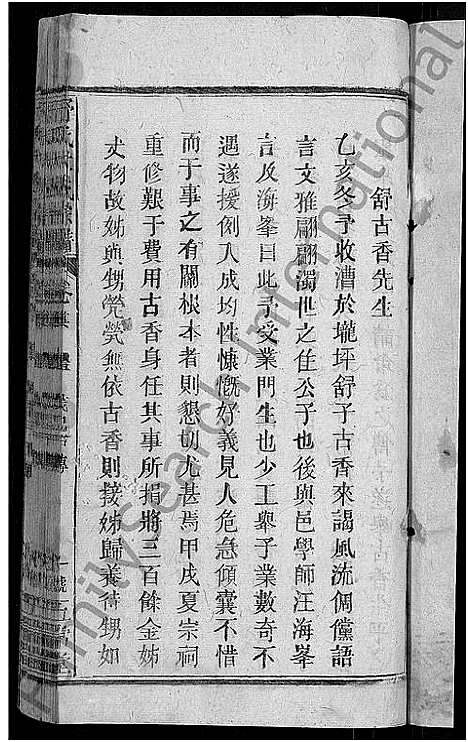 舒古香先生
乙亥冬予收漕於壠坪舒子古香來謁風流倜儻語
言文雅翩翩濁世之佳公子也後與邑學師汪海峯
言及海峯曰此予受業門生也少工舉子業數奇不
遇遂援例入成均性慷慨好義見人危急傾囊不惜
而于事之有關根本者則懇切尤甚焉甲戌夏宗祠
重修艱于費用古香身任其事所捐將三百餘金姊
丈物故姊與甥煢煢無依古香則接姊歸養待甥如
FamilySearch International